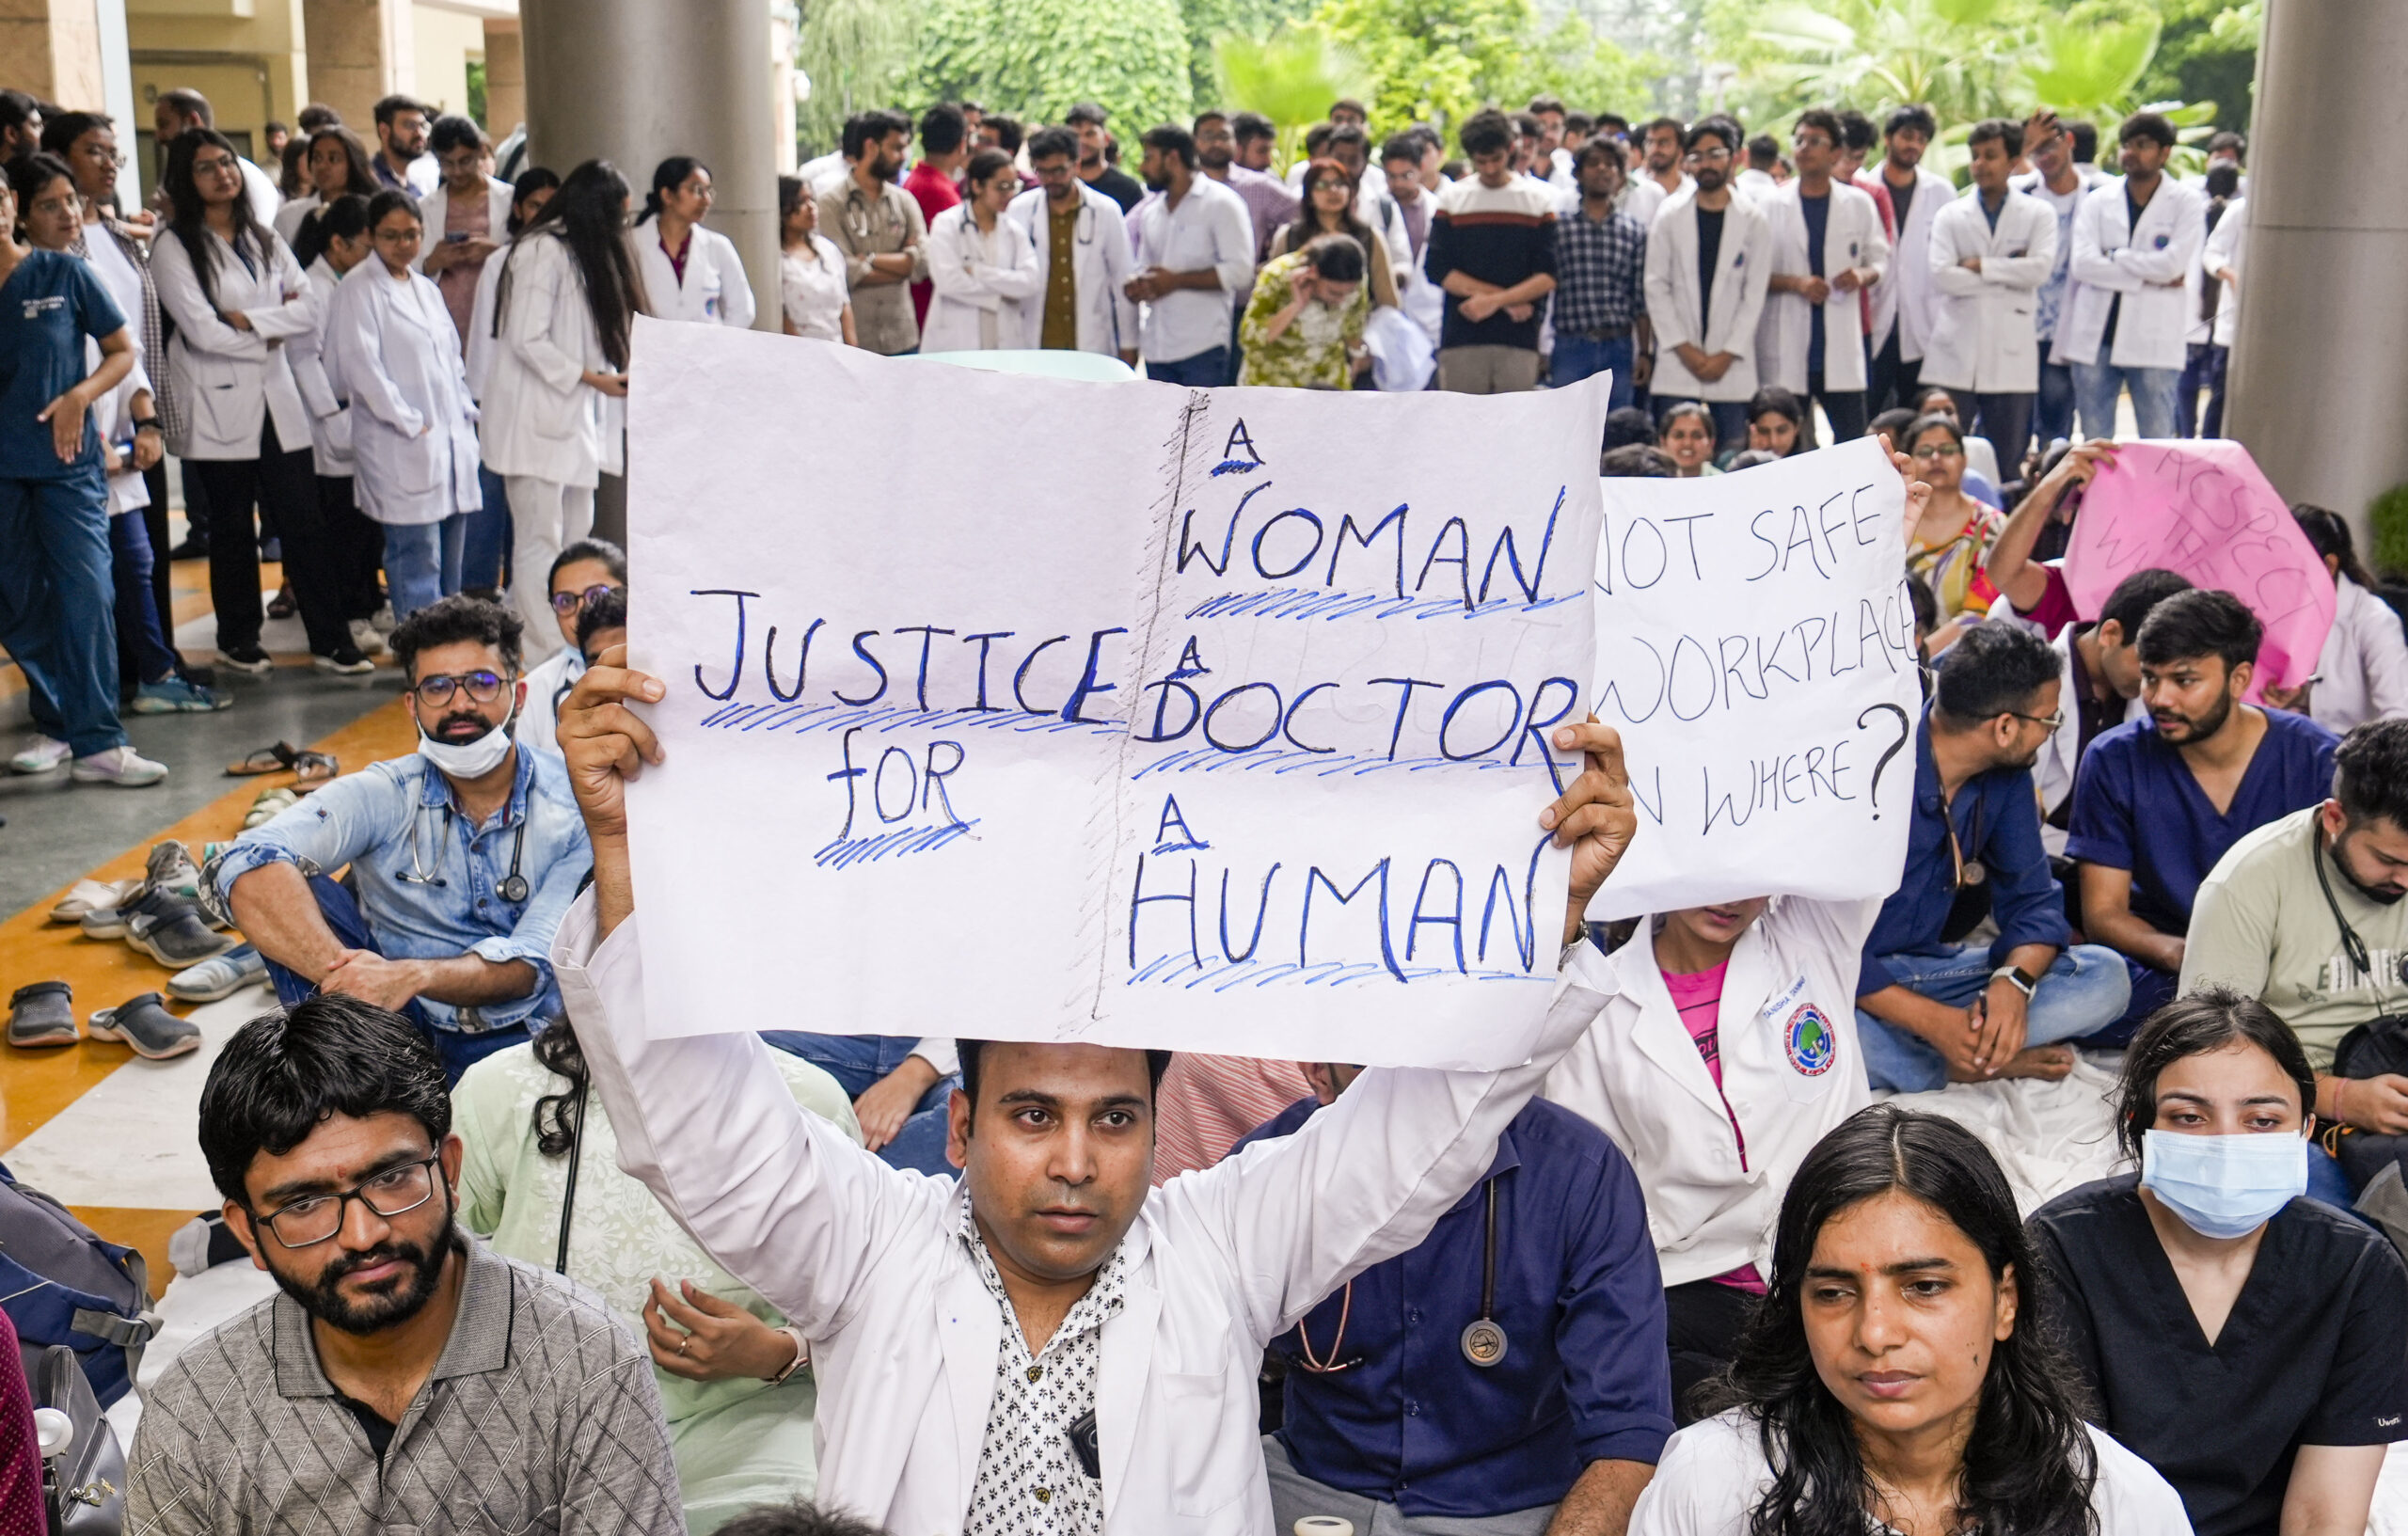 JUSTICE
FOR
A
WOMAN
A
DOCTOR
A
HUMAN
NOT SAFE
WORKPLACE
IN WHERE?
RESPECT
THE